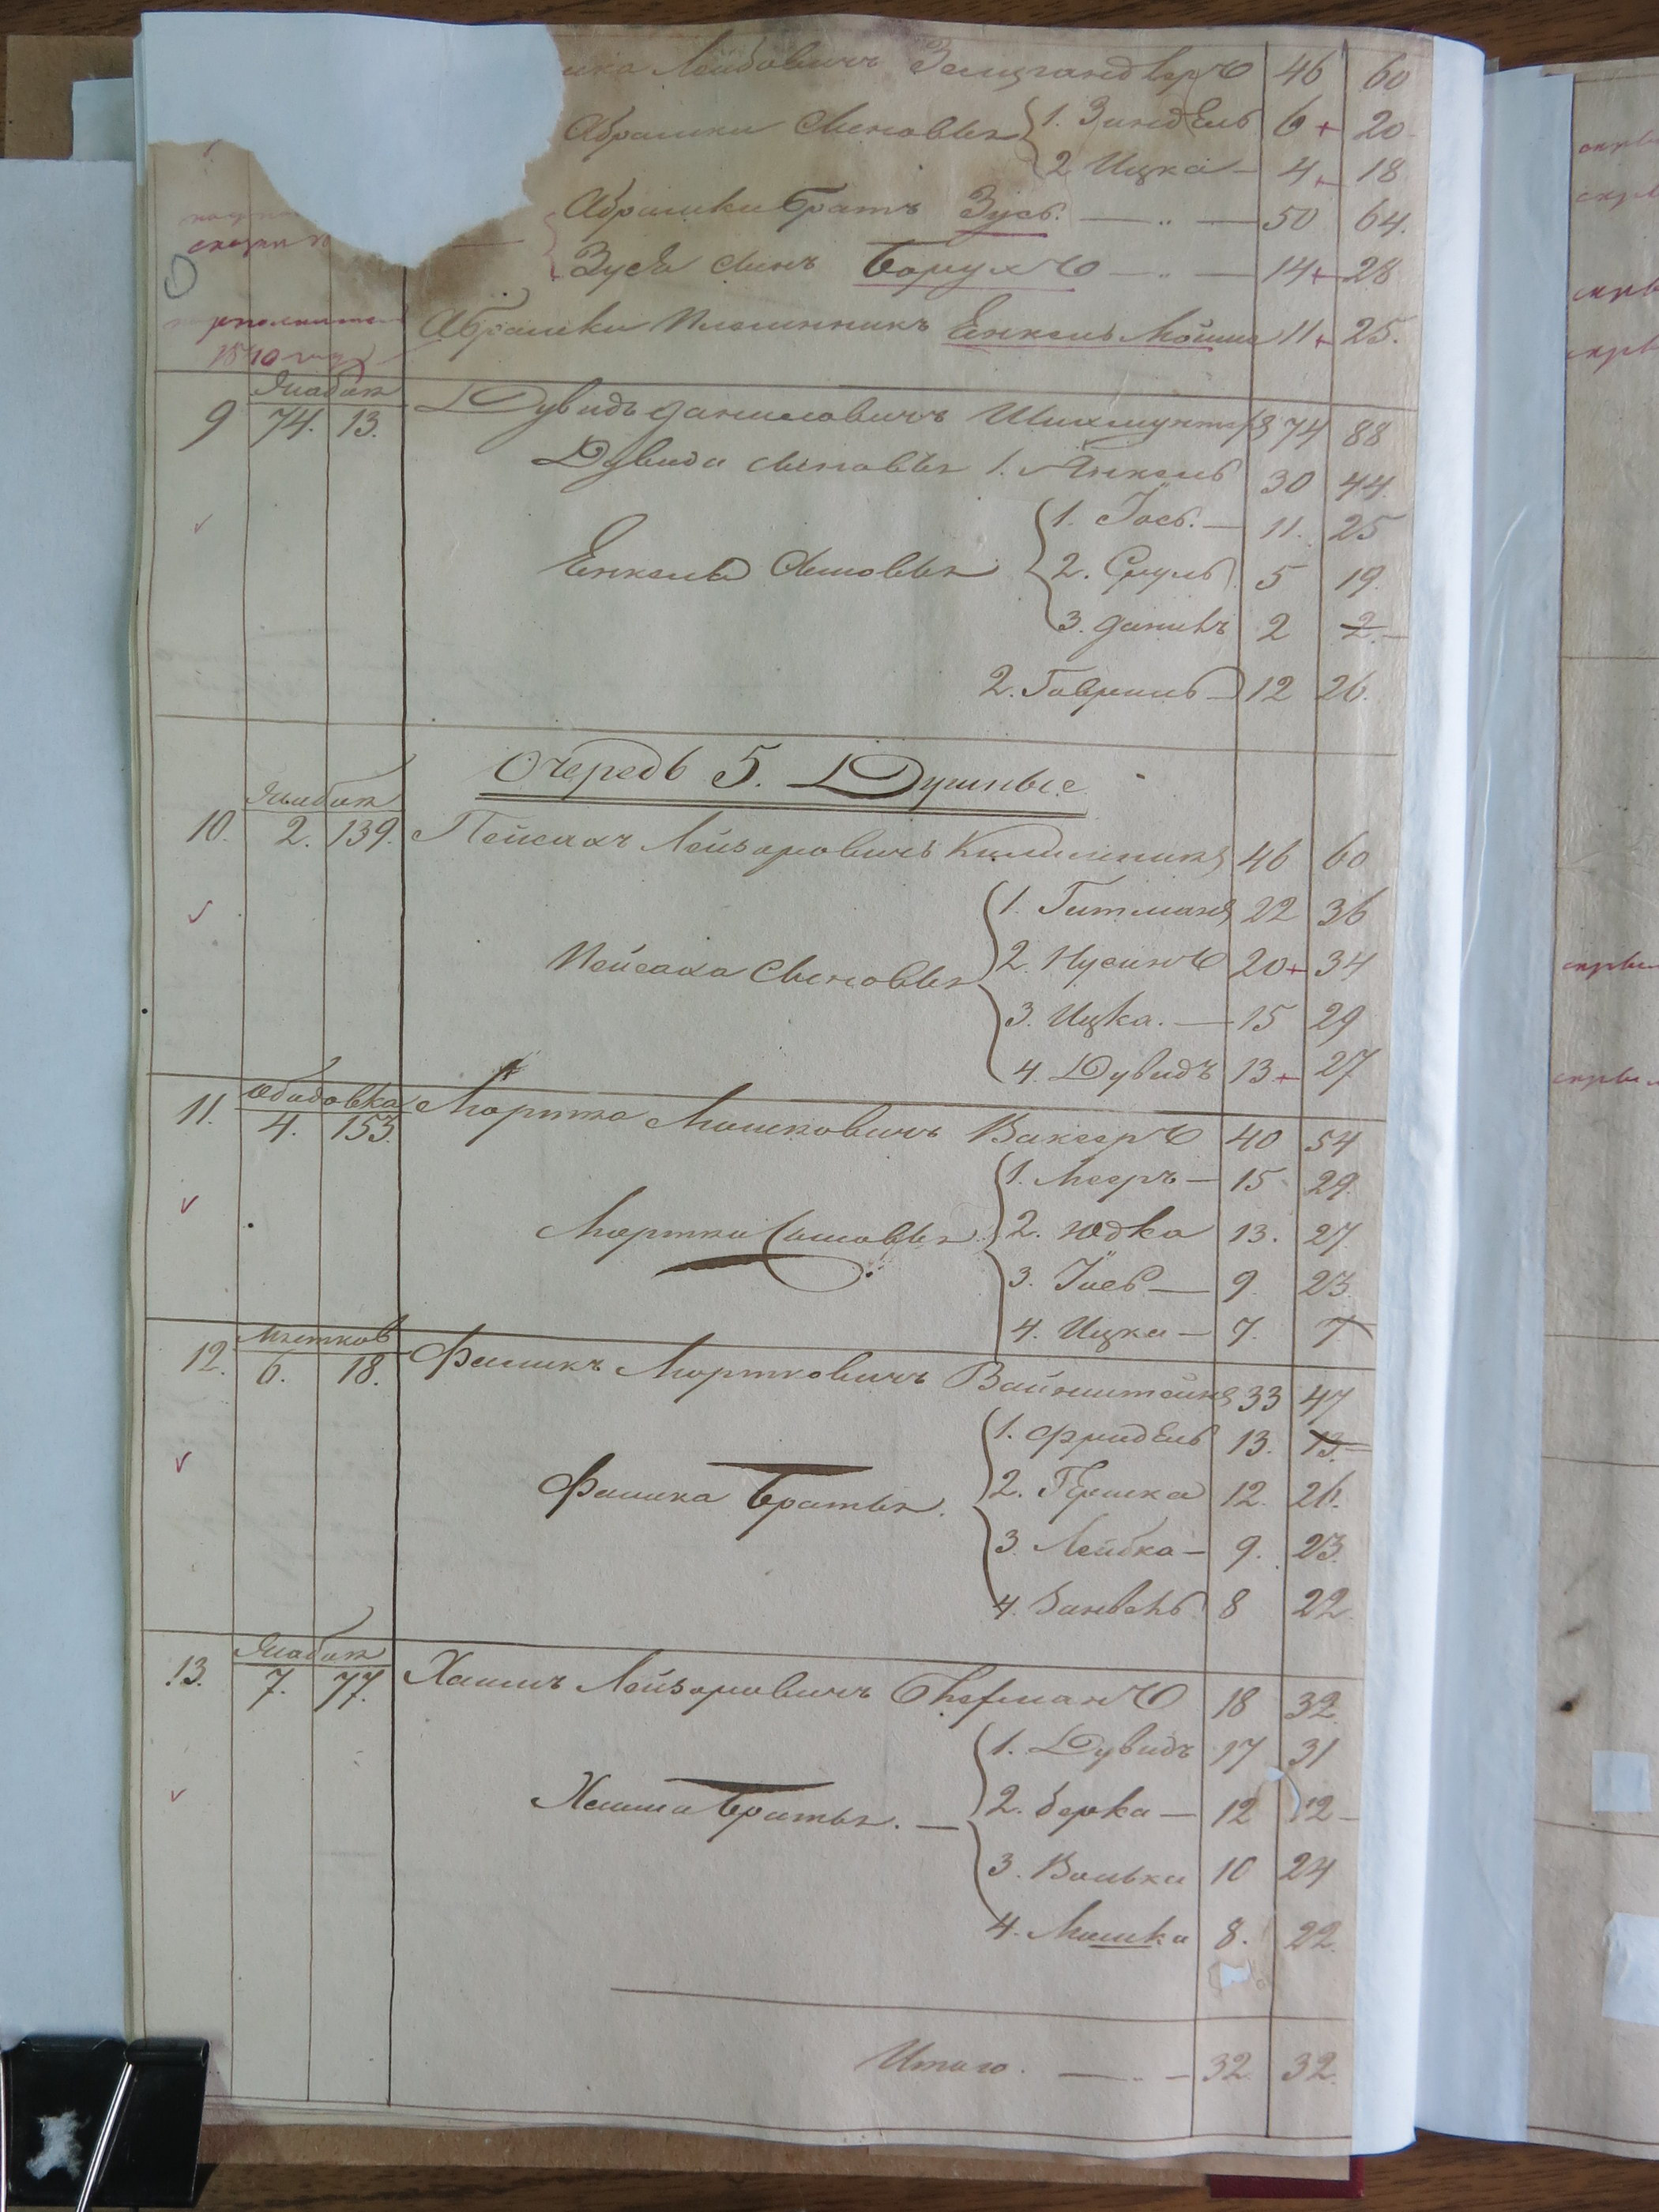 Лейбовичъ 46 60
Абрашки сыновья 1. Зиндель 6 + 20
2 Ицка — 4 + 18
Абрашки братъ Зусь. — „ — 50 64.
Зуся сынъ Борухъ — „ — 14 + 28
Абрашки племянникъ Енкель Мошка 11 + 25.
9 74. 13. Дувидъ Даниловичъ 74 88
Дувида сыновья 1. Янкель 30 44
1. Іось. — 11. 25
Енкеля сыновья 2. Сруль 5 19.
3. Данилъ 2 2. —
2. Гаврииль 12 26.
Очередь 5. Душные
10. 2. 139. Пейсахъ Лейзаровичъ 46 60
1. Гитманъ 22 36
Пейсаха сыновья 2. Нусинъ 20 + 34
3. Ицка. — 15 29
4. Дувидъ 13 + 27
Ободовка
11. 4. 153. Мортко Мошковичъ Ваксеръ 40 54
1. Мееръ — 15 29.
Мортка сыновья 2. Юдка 13. 27.
3. Іось — 9. 23.
4. Ицка — 7. 7
Мястков
12. 6. 18. Фашкъ Мортковичъ Вайнштейнъ 33 47
1. Фридель 13. 13. —
Фашка братья. 2. Гершка 12. 26.
3. Лейбка — 9. 23.
4. Занвель 8 22
13. 7. 77. Хаимъ Лейзаровичъ 18 32
1. Дувидъ 17 31
Хаима братья. — 2. Берка — 12 12 —
3. Волька 10 24
4. Мошка 8. 22.
Итого. — „ — 32 32.